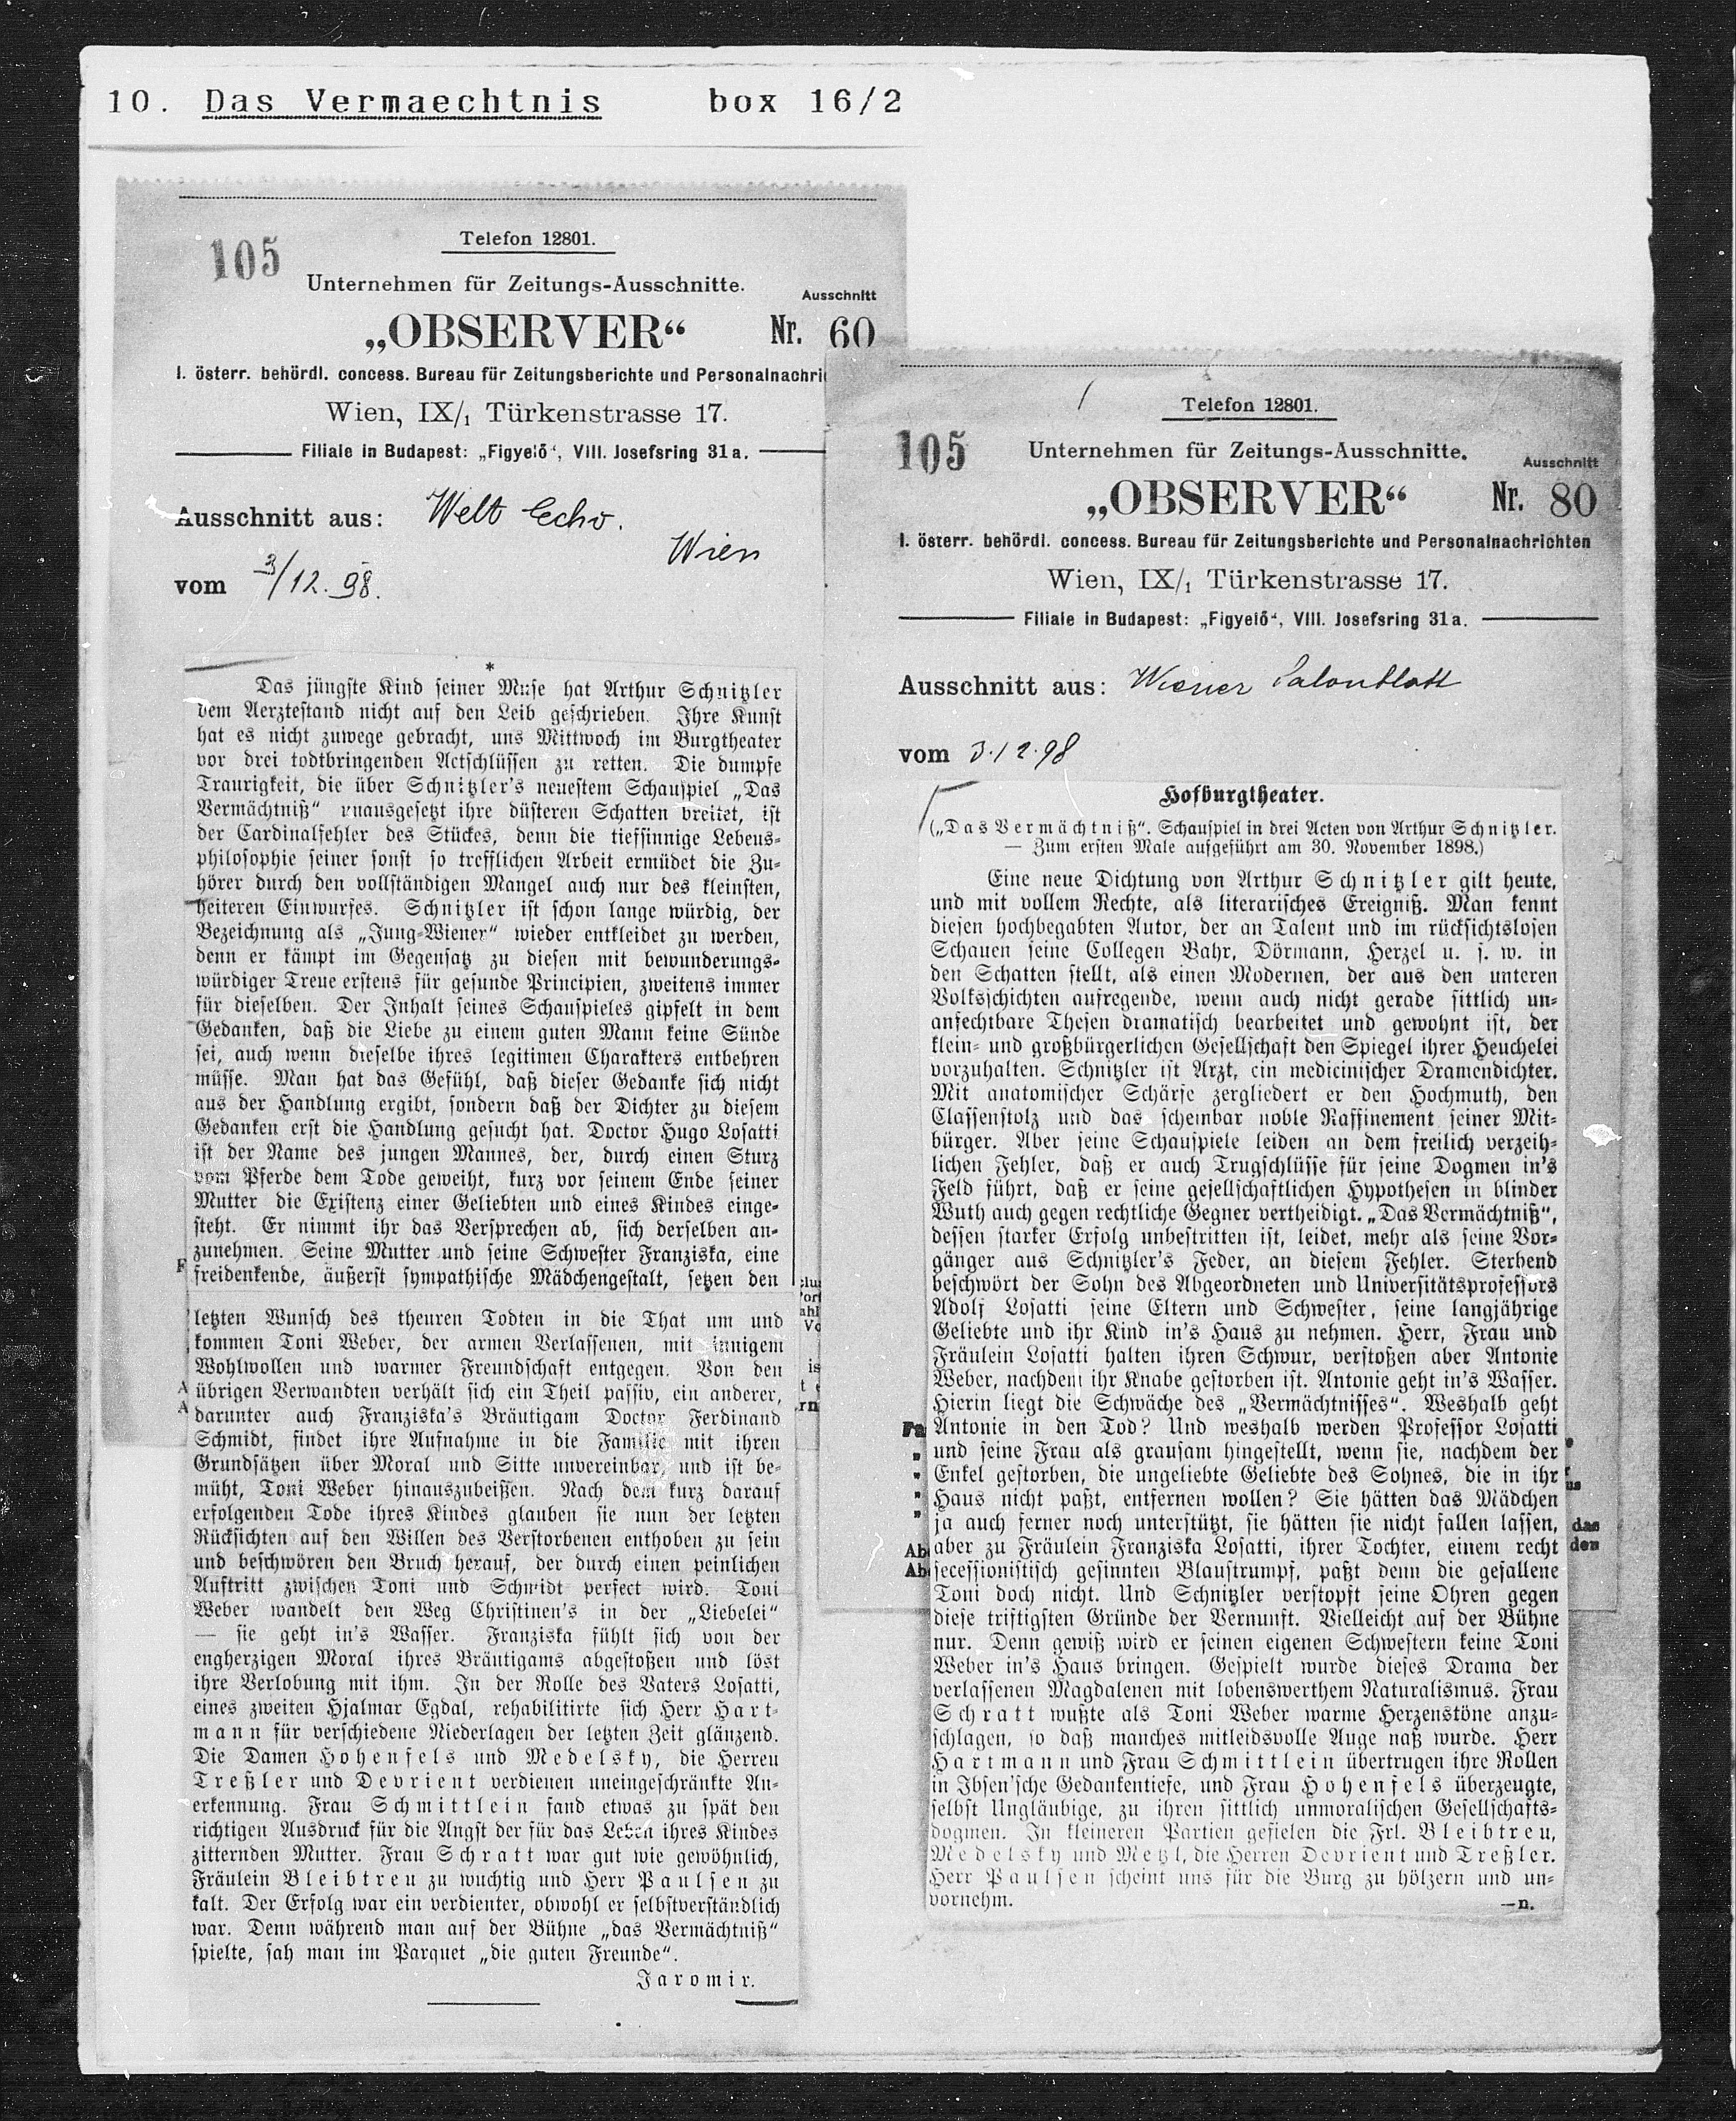 10. Das Vermaechtnis box 16/2
105
Telefon 12801.
Unternehmen für Zeitungs-Ausschnitte.
Ausschnitt
„OBSERVER“ Nr. 60
I. österr. behördl. concess. Bureau für Zeitungsberichte und Personalnachri
Wien, IX/1 Türkenstrasse 17.
Filiale in Budapest: „Figyelő“, VIII. Josefsring 31a.
Ausschnitt aus: Welt Echo.
Wien
vom 3/12. 98.
*
Das jüngste Kind seiner Muse hat Arthur Schnitzler
dem Aerztestand nicht auf den Leib geschrieben. Ihre Kunst
hat es nicht zuwege gebracht, uns Mittwoch im Burgtheater
vor drei todtbringenden Actschlüssen zu retten. Die dumpfe
Traurigkeit, die über Schnitzler's neuestem Schauspiel „Das
Vermächtniß“ unausgesetzt ihre düsteren Schatten breitet, ist
der Cardinalfehler des Stückes, denn die tiefsinnige Lebens-
philosophie seiner sonst so trefflichen Arbeit ermüdet die Zu-
hörer durch den vollständigen Mangel auch nur des kleinsten,
heiteren Einwurfes. Schnitzler ist schon lange würdig, der
Bezeichnung als „Jung-Wiener“ wieder entkleidet zu werden,
denn er kämpt im Gegensatz zu diesen mit bewunderungs-
würdiger Treue erstens für gesunde Principien, zweitens immer
für dieselben. Der Inhalt seines Schauspieles gipfelt in dem
Gedanken, daß die Liebe zu einem guten Mann keine Sünde
sei, auch wenn dieselbe ihres legitimen Charakters entbehren
müsse. Man hat das Gefühl, daß dieser Gedanke sich nicht
aus der Handlung ergibt, sondern daß der Dichter zu diesem
Gedanken erst die Handlung gesucht hat. Doctor Hugo Losatti
ist der Name des jungen Mannes, der, durch einen Sturz
vom Pferde dem Tode geweiht, kurz vor seinem Ende seiner
Mutter die Existenz einer Geliebten und eines Kindes einge-
steht. Er nimmt ihr das Versprechen ab, sich derselben an-
zunehmen. Seine Mutter und seine Schwester Franziska, eine
freidenkende, äußerst sympathische Mädchengestalt, setzen den
letzten Wunsch des theuren Todten in die That um und
kommen Toni Weber, der armen Verlassenen, mit innigem
Wohlwollen und warmer Freundschaft entgegen. Von den
übrigen Verwandten verhält sich ein Theil passiv, ein anderer,
darunter auch Franziska's Bräutigam Doctor Ferdinand
Schmidt, findet ihre Aufnahme in die Familie mit ihren
Grundsätzen über Moral und Sitte unvereinbar und ist be-
müht, Toni Weber hinauszubeißen. Nach dem kurz darauf
erfolgenden Tode ihres Kindes glauben sie nun der letzten
Rücksichten auf den Willen des Verstorbenen enthoben zu sein
und beschwören den Bruch herauf, der durch einen peinlichen
Auftritt zwischen Toni und Schmidt perfect wird. Toni
Weber wandelt den Weg Christinen's in der „Liebelei“
— sie geht in's Wasser. Franziska fühlt sich von der
engherzigen Moral ihres Bräutigams abgestoßen und löst
ihre Verlobung mit ihm. In der Rolle des Vaters Losatti,
eines zweiten Hjalmar Egdal, rehabilitirte sich Herr Hart-
mann für verschiedene Niederlagen der letzten Zeit glänzend.
Die Damen Hohenfels und Medelsky, die Herren
Treßler und Devrient verdienen uneingeschränkte An-
erkennung. Frau Schmittlein fand etwas zu spät den
richtigen Ausdruck für die Angst der für das Leben ihres Kindes
zitternden Mutter. Frau Schratt war gut wie gewöhnlich,
Fräulein Bleibtreu zu wuchtig und Herr Paulsen zu
kalt. Der Erfolg war ein verdienter, obwohl er selbstverständlich
war. Denn während man auf der Bühne „das Vermächtniß“
spielte, sah man im Parquet „die guten Freunde“.
Jaromir.
105
Telefon 12801.
Unternehmen für Zeitungs-Ausschnitte.
Ausschnitt
„OBSERVER“ Nr. 80
I. österr. behördl. concess. Bureau für Zeitungsberichte und Personalnachrichten
Wien, IX/1 Türkenstrasse 17.
Filiale in Budapest: „Figyelő“, VIII. Josefsring 31a.
Ausschnitt aus: Wiener Salonblatt
vom 3.12.98
Hofburgtheater.
(„Das Vermächtniß“. Schauspiel in drei Acten von Arthur Schnitzler.
— Zum ersten Male aufgeführt am 30. November 1898.)
Eine neue Dichtung von Arthur Schnitzler gilt heute,
und mit vollem Rechte, als literarisches Ereigniß. Man kennt
diesen hochbegabten Autor, der an Talent und im rücksichtslosen
Schauen seine Collegen Bahr, Dörmann, Herzel u. s. w. in
den Schatten stellt, als einen Modernen, der aus den unteren
Volksschichten aufregende, wenn auch nicht gerade sittlich un-
anfechtbare Thesen dramatisch bearbeitet und gewohnt ist, der
klein- und großbürgerlichen Gesellschaft den Spiegel ihrer Heuchelei
vorzuhalten. Schnitzler ist Arzt, ein medicinischer Dramendichter.
Mit anatomischer Schärfe zergliedert er den Hochmuth, den
Classenstolz und das scheinbar noble Raffinement seiner Mit-
bürger. Aber seine Schauspiele leiden an dem freilich verzeih-
lichen Fehler, daß er auch Trugschlüsse für seine Dogmen in's
Feld führt, daß er seine gesellschaftlichen Hypothesen in blinder
Wuth auch gegen rechtliche Gegner vertheidigt. „Das Vermächtniß“,
dessen starker Erfolg unbestritten ist, leidet, mehr als seine Vor-
gänger aus Schnitzler's Feder, an diesem Fehler. Sterbend
beschwört der Sohn des Abgeordneten und Universitätsprofessors
Adolf Losatti seine Eltern und Schwester, seine langjährige
Geliebte und ihr Kind in's Haus zu nehmen. Herr, Frau und
Fräulein Losatti halten ihren Schwur, verstoßen aber Antonie
Weber, nachdem ihr Knabe gestorben ist. Antonie geht in's Wasser.
Hierin liegt die Schwäche des „Vermächtnisses“. Weshalb geht
Antonie in den Tod? Und weshalb werden Professor Losatti
und seine Frau als grausam hingestellt, wenn sie, nachdem der
Enkel gestorben, die ungeliebte Geliebte des Sohnes, die in ihr
Haus nicht paßt, entfernen wollen? Sie hätten das Mädchen
ja auch ferner noch unterstützt, sie hätten sie nicht fallen lassen,
aber zu Fräulein Franziska Losatti, ihrer Tochter, einem recht
secessionistisch gesinnten Blaustrumpf, paßt denn die gefallene
Toni doch nicht. Und Schnitzler verstopft seine Ohren gegen
diese triftigsten Gründe der Vernunft. Vielleicht auf der Bühne
nur. Denn gewiß wird er seinen eigenen Schwestern keine Toni
Weber in's Haus bringen. Gespielt wurde dieses Drama der
verlassenen Magdalenen mit lobenswerthem Naturalismus. Frau
Schratt wußte als Toni Weber warme Herzenstöne anzu-
schlagen, so daß manches mitleidsvolle Auge naß wurde. Herr
Hartmann und Frau Schmittlein übertrugen ihre Rollen
in Ibsen'sche Gedankentiefe, und Frau Hohenfels überzeugte,
selbst Ungläubige, zu ihren sittlich unmoralischen Gesellschafts-
dogmen. In kleineren Partien gefielen die Frl. Bleibtreu,
Medelsky und Metzl, die Herren Devrient und Treßler.
Herr Paulsen scheint uns für die Burg zu hölzern und un-
vornehm. —n.